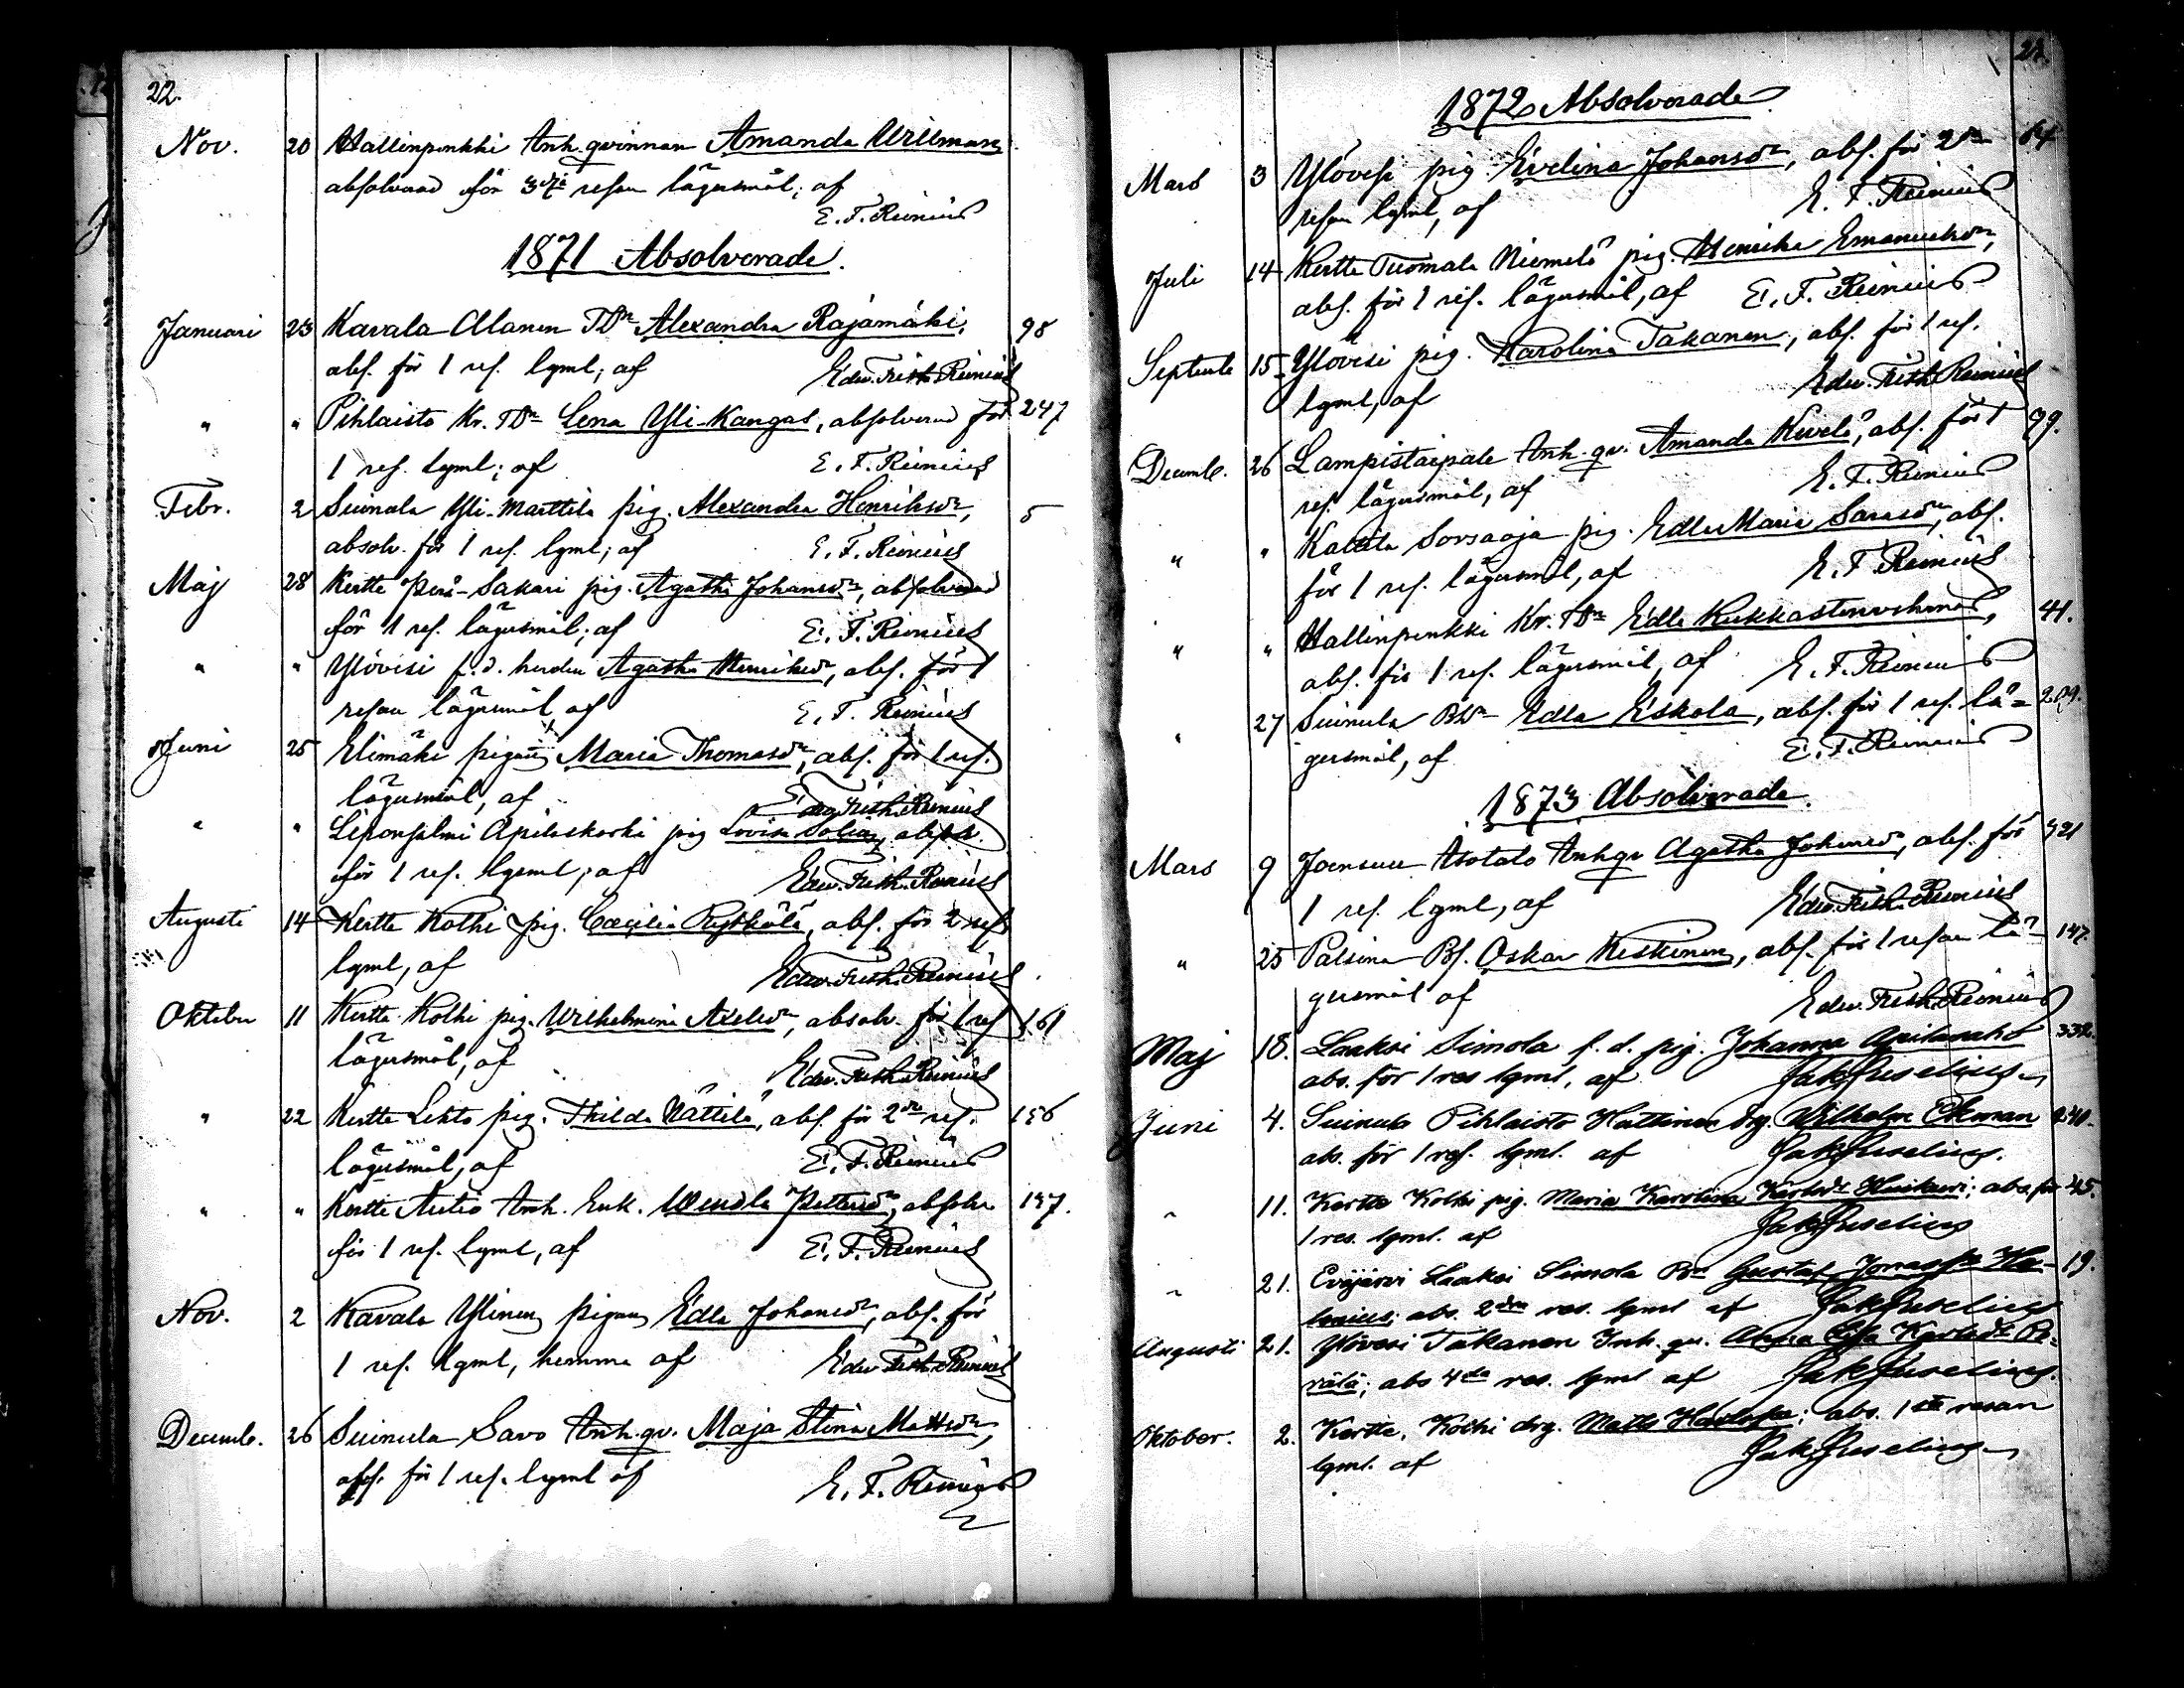 22.
Nov. 20 Hallinpenkki Inh. qvinnan Amanda Willman
absolverad för 3dje resan lägersmål; af
E. F. Reinius
1871 Absolverade.
Januari 23 Kavala Alanen TDr Alexandra Rajamäki, 98
abs. för 1 res. lgml; af Edw. Frith. Reinius
" " Pihlaisto Kr. TDr Lena Yli-Kangas, absolverad för 247
1 res. lgml; af E. F. Reinius
Febr. 2 Suinula Yli-Marttila pig. Alexandra Henriksdr, 5
absolv. för 1 res. lgml; af E. F. Reinius
Maj 28 Kertte Perä-Sakari pig. Agatha Johansdr, absolverad
för 1 res. lägersmål; af E. F. Reinius
" " Ylövesi f. d. Agatha Henriksdr, abs. för 1
resan lägersmål af E. F. Reinius
Juni 25 Elimäki pigan Maria Thomasdr, abs. för 1 res.
lägersmål, af Edw. Frith. Reinius
" " pig Lovisa
för 1 res. lgsml; af Edw. Frith. Reinius
Augusti 14 Kertte Kolhi pig. Cæcilia abs. för 2 res
lgml, af Edw. Frith. Reinius
Oktober 11 Kertte Kolhi pig. Wilhelmina Axelsdr, absolv. för 1 res 161
lägersmål, af Edw. Frith. Reinius
" 22 Kertte Lehto pig. Thilda Nättilä, abs. för 2dra res. 156
lägersmål, af E. F. Reinius
" " Kertte Autio Inh. Enk. Wendla Pettersdr, absolv 147.
för 1 res. lgml, af E. F. Reinius
Nov. 2 Kavala Ylinen pigan Edla Johansdr, abs. för
1 res. lgml, hemma af Edw. Frith. Reinius
Decemb. 26 Suinula Savo Inh. qv. Maja Stina Mattsdr,
abs. för 1 res. lgml af E. F. Reinius
1872 Absolverade
Mars 3 Ylövesi pig. Evelina Johansdr, abs. för 2dra 64
resan lgml, af E. F. Reinius
Juli 14 Kertte Tuomala Niemelä pig. Henrika Emanuelsdr,
abs. för 1 res. lägersmål, af E. F. Reinius
Septemb 15 Ylövesi pig. Karolina Takanen, abs. för 1 res.
lgml, af Edw. Frith. Reinius
Decemb. 26 Lampistaipale Inh. qv. Amanda Kivelä, abs. för 1 99.
res. lägersmål, af E. F. Reinius
" " Kattila Sorsaoja pig. Edla Maria abs.
för 1 res. lägersmål, af E. F. Reinius
" " Hallinpenkki Kr. TDr Edla 41.
abs. för 1 res. lägersmål, af E. F. Reinius
" 27 Suinula BDr Edla Eskola, abs. för 1 res. lä= 209.
gersmål, af E. F. Reinius
1873 Absolverade.
Mars 9 Joensuu Isotalo Inh. qv Agatha Johansd, abs. för 321
1 res. lgml, af Edw. Frith. Reinius
" 25 Palsina Bs. Oskar Keskinen, abs. för 1 resan lä- 147.
gersmål af Edw. Frith. Reinius
Maj 18. Laaksi Simola f. d. pig. Johanna 332.
abs. för 1 res lgml, af Jak. Juselius
Juni 4. Suinula Pihlaisto Hattinen drg. Wilhelm Ekman 240.
abs. för 1 res. lgml. af Jak. Juselius.
" 11. Kertte Kolhi pig. Maria Karolina Karlsdr abs. för 45.
1 res. lgml. af Jak. Juselius
" 21. Evijärvi Laaksi Simola Gustaf 19.
abs. 2dra res. lgml af Jak. Juselius
Augusti 21. Ylövesi Takanen Inh. qv. Anna Lisa Karlsdr Pe-
rälä; abs 4de res. lgml af Jak. Juselius.
Oktober. 2. Kertte, Kolhi drg. Matts abs. 1sta resan
lgml. af Jak. Juselius